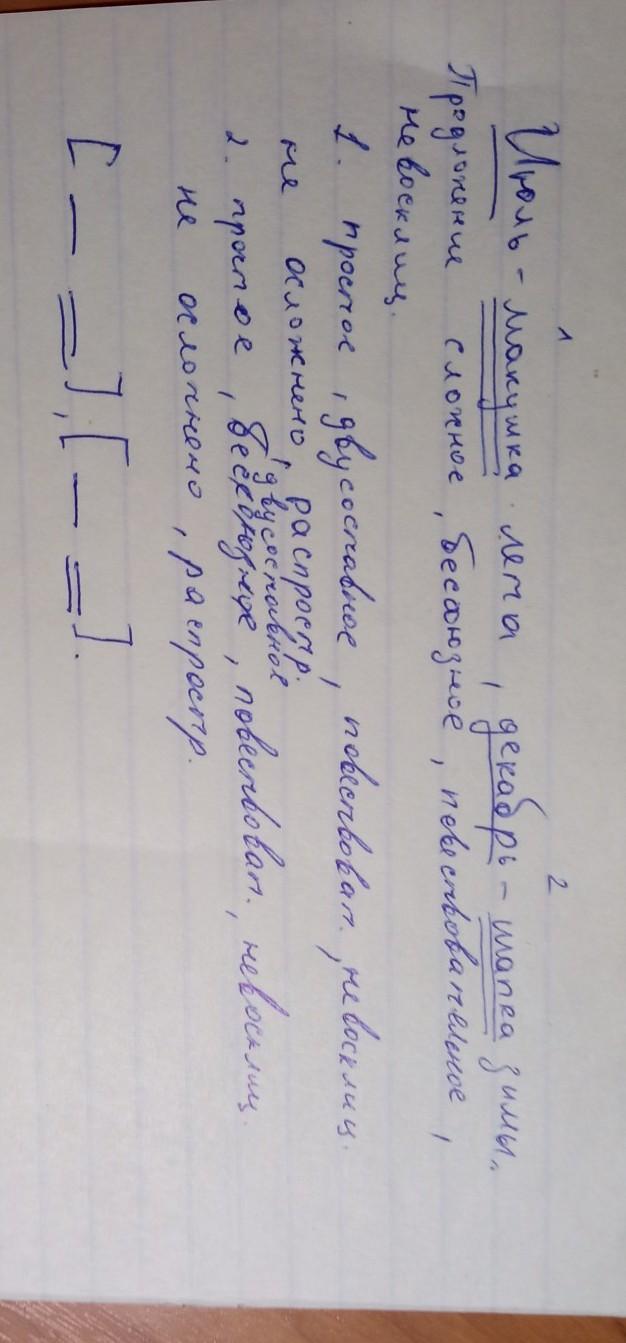 1 2
Июль - макушка лета, декабрь - шапка зимы.
Предложение сложное, бессоюзное, повествовательное,
невосклиц.
1. простое, двусоставное, повествоват., невосклиц.
не осложнено, распростр.
двусоставное
2. простое, , повествоват., невосклиц.
не осложнено, распростр.
[ — = ], [ — = ].